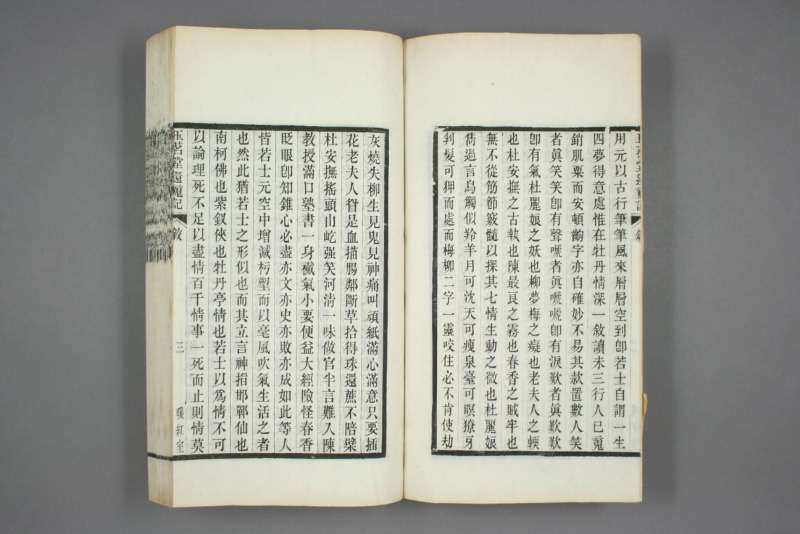 用元以古行筆筆風來層層空到卽若士自謂一生
四夢得意處惟在牡丹情深一敘讀未三行人已䰟
銷肌粟而安頓齣字亦自確妙不易其款置數人笑
者眞笑笑卽有聲嗁者眞嗁嗁卽有淚歎者眞歎歎
卽有氣杜麗娘之妖也柳夢梅之癡也老夫人之輭
也杜安撫之古執也陳最良之霧也春香之賊牢也
無不從筋節竅髓以探其七情生動之微也杜麗娘
雋過言鳥觸似羚羊月可沈天可瘦泉臺可暝獠牙
判髮可狎而處而梅柳二字一靈咬住必不肯使劫
灰燒失柳生見鬼見神痛叫頑紙滿心滿意只要插
花老夫人㫮是血描腸鄰斷草拾得珠還蔗不陪檗
杜安撫搖頭山屹强笑河清一味做官半言難入陳
教授滿口塾書一身襶氣小要便益大經險怪春香
眨眼卽知錐心必盡亦文亦史亦敗亦成如此等人
皆若士元空中增減朽塑而以毫風吹氣生活之者
也然此猶若士之形似也而其立言神指邯鄲仙也
南柯佛也紫釵俠也牡丹亭情也若士以爲情不可
以論理死不足以盡情百千情事一死而止則情莫
玉茗堂還魂記
敘
三
暖紅室